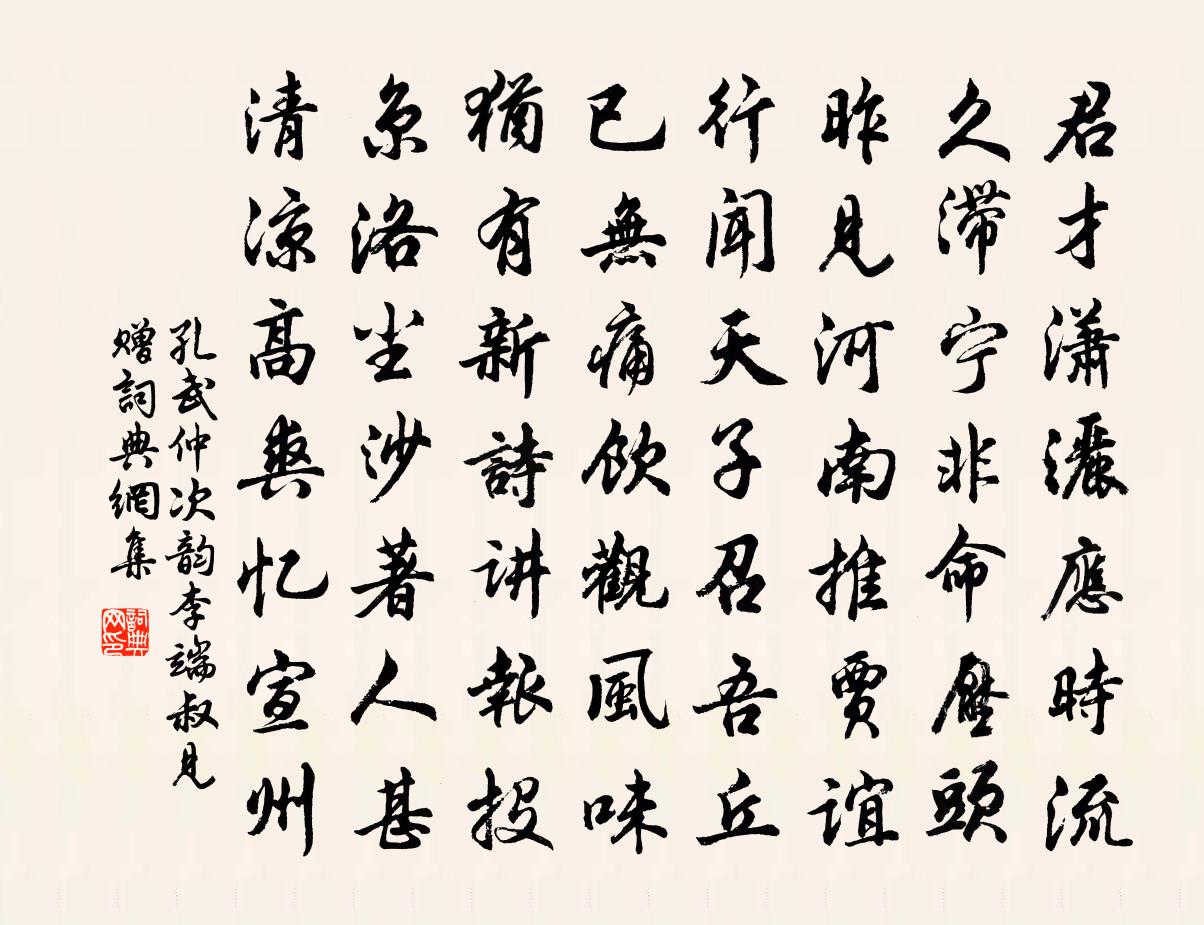 君才潇灑應時流
久滯宁非命壓頭
昨見河南推贾谊
行聞天子召吾丘
已無痛飲觀風味
猶有新詩讲報投
京洛尘沙著人甚
清凉高爽忆宣州
孔武仲次韵李端叔見
赠詞典網集
詞典
网印